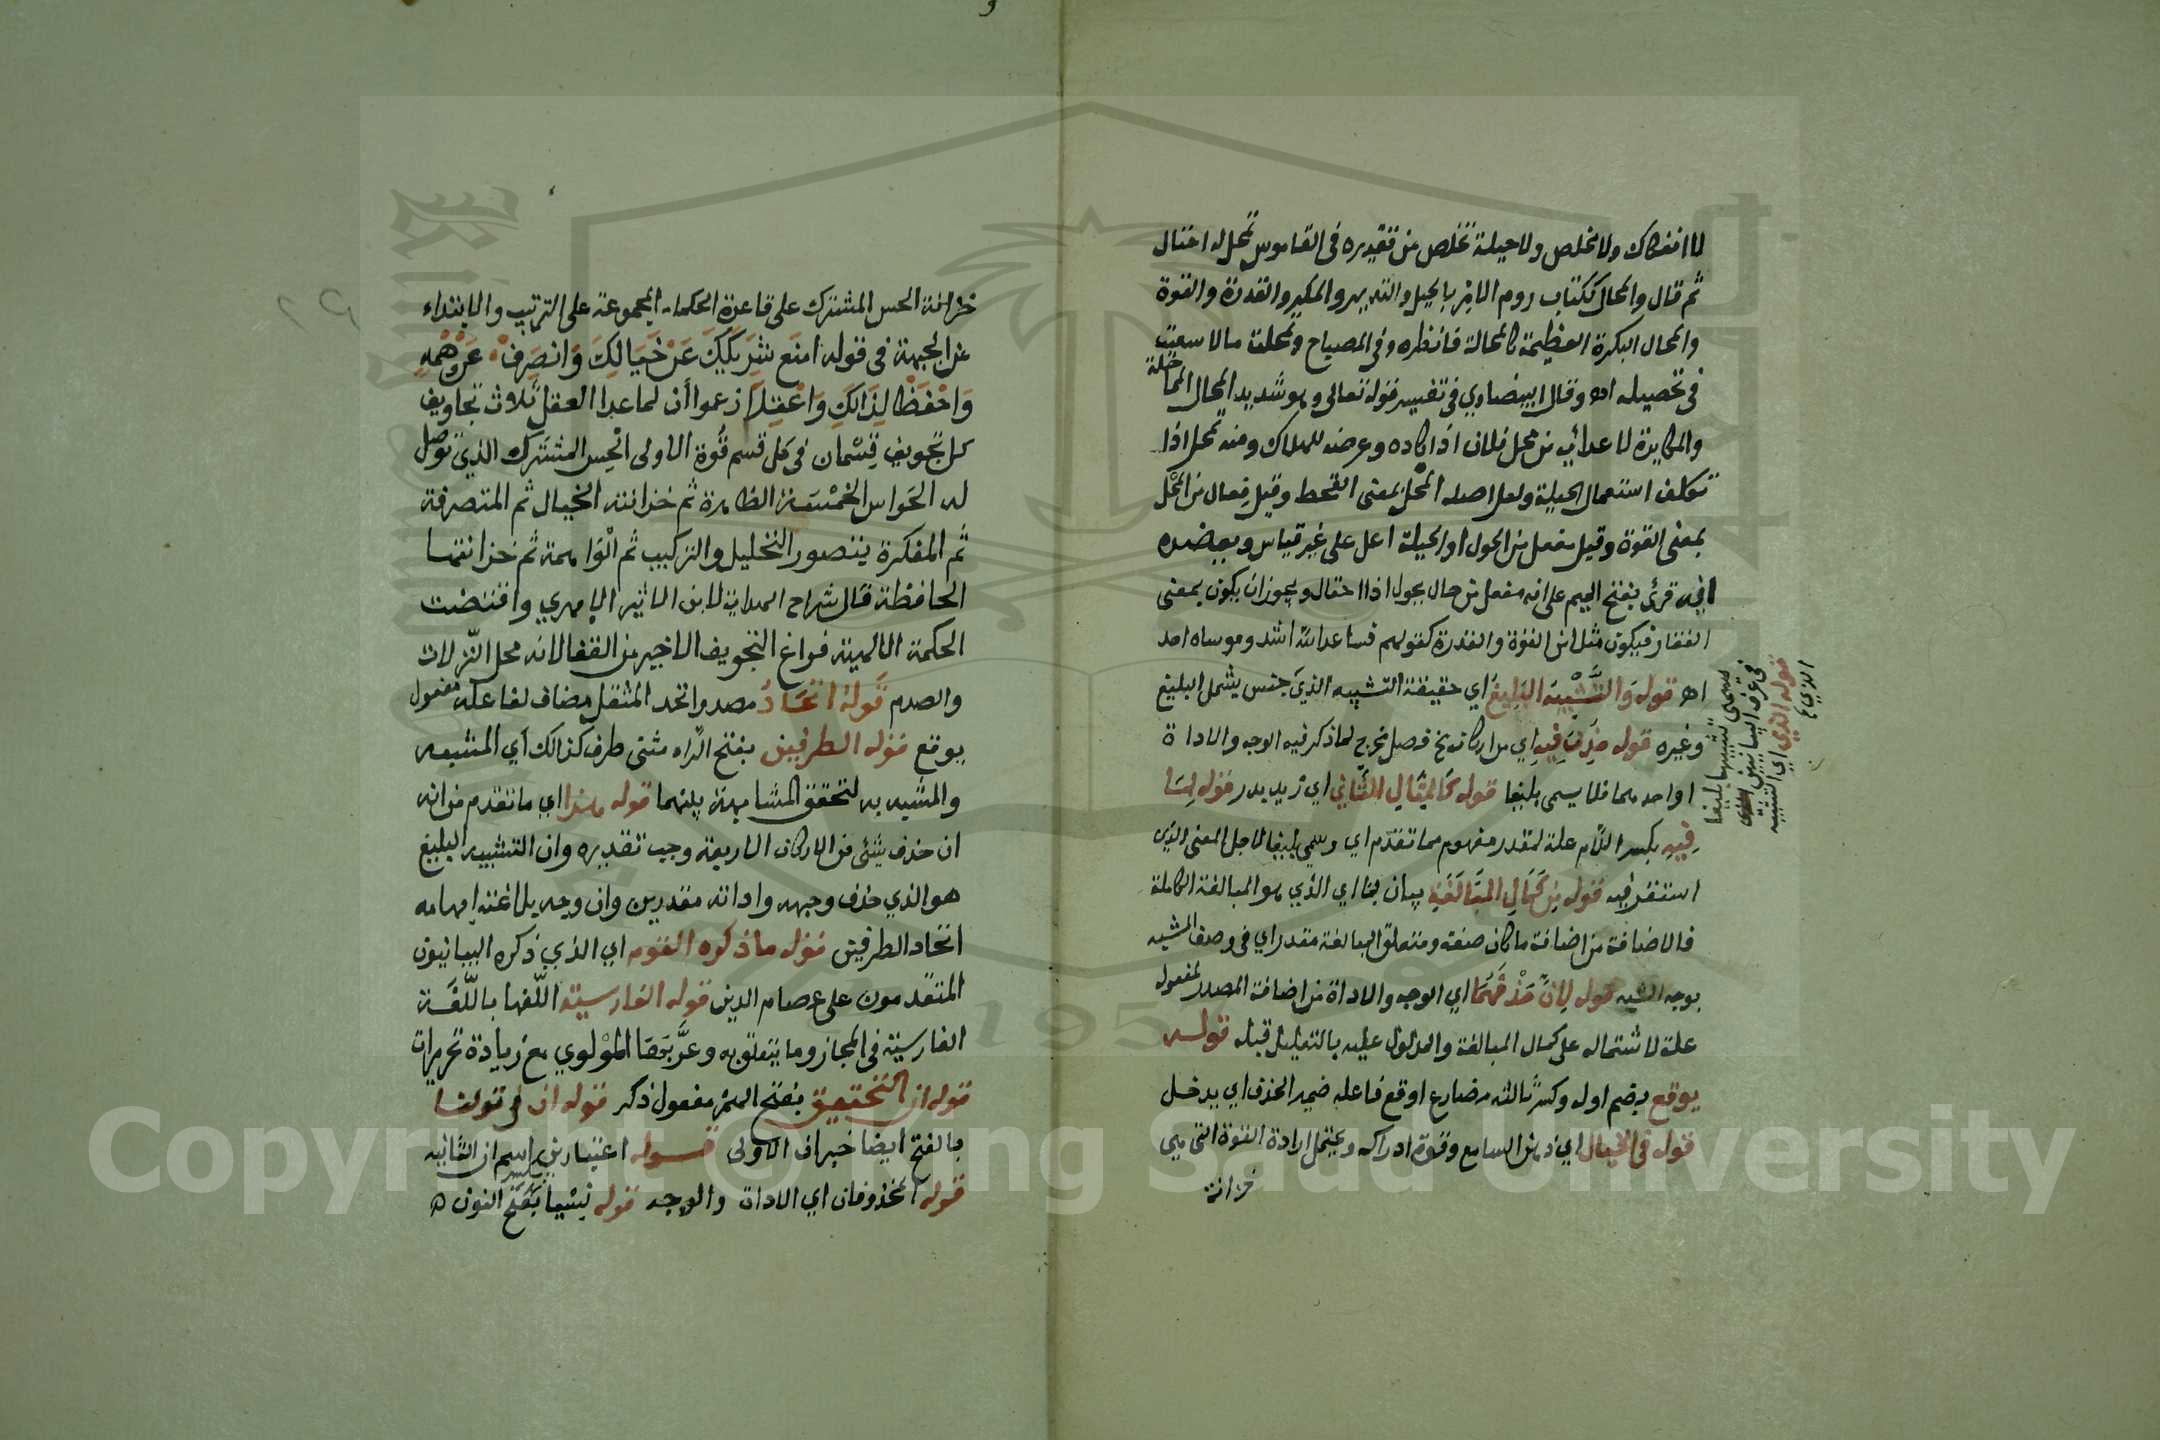 لا انفكاك ولا مخلص ولا حيلة تخلص من تقديره في القاموس تمحل له احتال
ثم قال والمحال ككتاب روم الامر بالحيل والتدبير والمكر والقدرة والقوة
والمحال البكرة العظيمة كالمحالة فانظره وفي المصباح
في تحصيله اه وقال البيضاوي في تفسير قوله تعالى وهو شديد المحال المماحلة
والمكايدة لاعدائه من محل فلان اذا كاده وعرضه للهلاك ومنه تمحل اذا
تكلف استعمال الحيلة ولعل اصله المحل بمعنى القحط وقيل فعال من المحل
بمعنى القوة وقيل مفعل من الحول او الحيلة اعل على غير قياس ويعضده
انه قرئ بفتح الميم على انه مفعل من حال يحول اذا احتال ويجوز ان يكون بمعنى
الفقار فيكون مثلا في القوة والقدرة كقولهم فساعد الله اشد وموساه احد
اه قوله وَالتَّشْبِيه البَلِيغُ اي حقيقة التشبيه الذي جنس يشمل البليغ
وغيره قوله حذف فيه اي من اركانه فصل مخرج لما ذكر فيه الوجه والاداة
او احدهما فلا يسمى بليغا قوله كَالمِثَالِ الثَّانِي اي زيد بدر قوله لِمَا
فِيهِ بكسر اللام علة لمقدر مفهوم مما تقدم اي وسمي بليغا لاجل المعنى الذي
استقر فيه قوله مِن كَمَالِ المبَالَغَةِ بيان لما اي الذي هو المبالغة الكاملة
فالاضافة من اضافة ما كان صفة ومتعلق المبالغة مقدر اي في وصف المشبه
بوجه الشبه قوله لِانَّ حَذْفَهُمَا اي الوجه والاداة من اضافة المصدر لمفعوله
علة لاشتماله على كمال المبالغة والمدلول عليه بالتعليل قبله قوله
يوقع بضم اوله وكسر ثالثه مضارع اوقع فاعله ضمير الحذف اي يدخل
قوله في الخيال اي ذهن السامع وقوة ادراكه ويحتمل ارادة القوة التي هي
خزانة
قوله الذي اي التشبيه الذي
في عرف البيانيين
يسمى تشبيها بليغا
خزانة الحس المشترك على قاعدة الحكماء المجموعة على الترتيب والابتداء
من الجبهة في قوله امنع شَرِيكَكَ عَنْ خَيَالِكَ وَانصَرِفْ عَنْ وَهْمِهِ
وَاحْفَظْ لِذَالِكَ وَاعْقِلَا زعموا أن لما عدا العقل ثلاث تجاويف
كل تجويف قِسْمان في كل قسم قُوة الاولى الحِس المشتَرك الذي توصل
له الحَواس الخمْسَة الظاهرة ثم خزانته الخيال ثم المتصرفة
ثم المفكرة يتصور التحليل والتركيب ثم الْوَاهمة ثم خزانتها
الحافظة قال شراح الهداية لابن الاثير الابهري واقتضت
الحكمة الالهية فراغ التجويف الاخير من القفا لانه محل النزلات
والصدم قَولهُ اتحَادُ مصدر اتحد المثقل مضاف لفاعله مفعول
يوقع قوله الطرفين بفتح الراء مثنى طرف كذالك اي المشبه
والمشبه به لتحقق المشابهة بينهما قوله هذا اي ما تقدم من انه
ان حذف شئ من الاركان الاربعة وجب تقديره وان التشبيه البليغ
هو الذي حذف وجهه واداته مقدرين وان وجه بلاغته ايهامه
اتحاد الطرفين قوله ما ذكره القوم اي الذي ذكره البيانيون
المتقدمون على عصام الدين قوله الفارسية اللّفها باللُّغَة
الفارسية في المجاز وما يتعلق به وعرَّبَهَا المَوْلوي مع زيادة تحريرات
قوله ان التحقيق بفتح الهمز مفعول ذكر قوله ان قولنا
بالفتح ايضا خبر ان الاولى قوله اعتبارين بكسر اسم ان الثانية
قوله المحذوفان اي الاداة والوجه قوله نسْيا بفتح النون